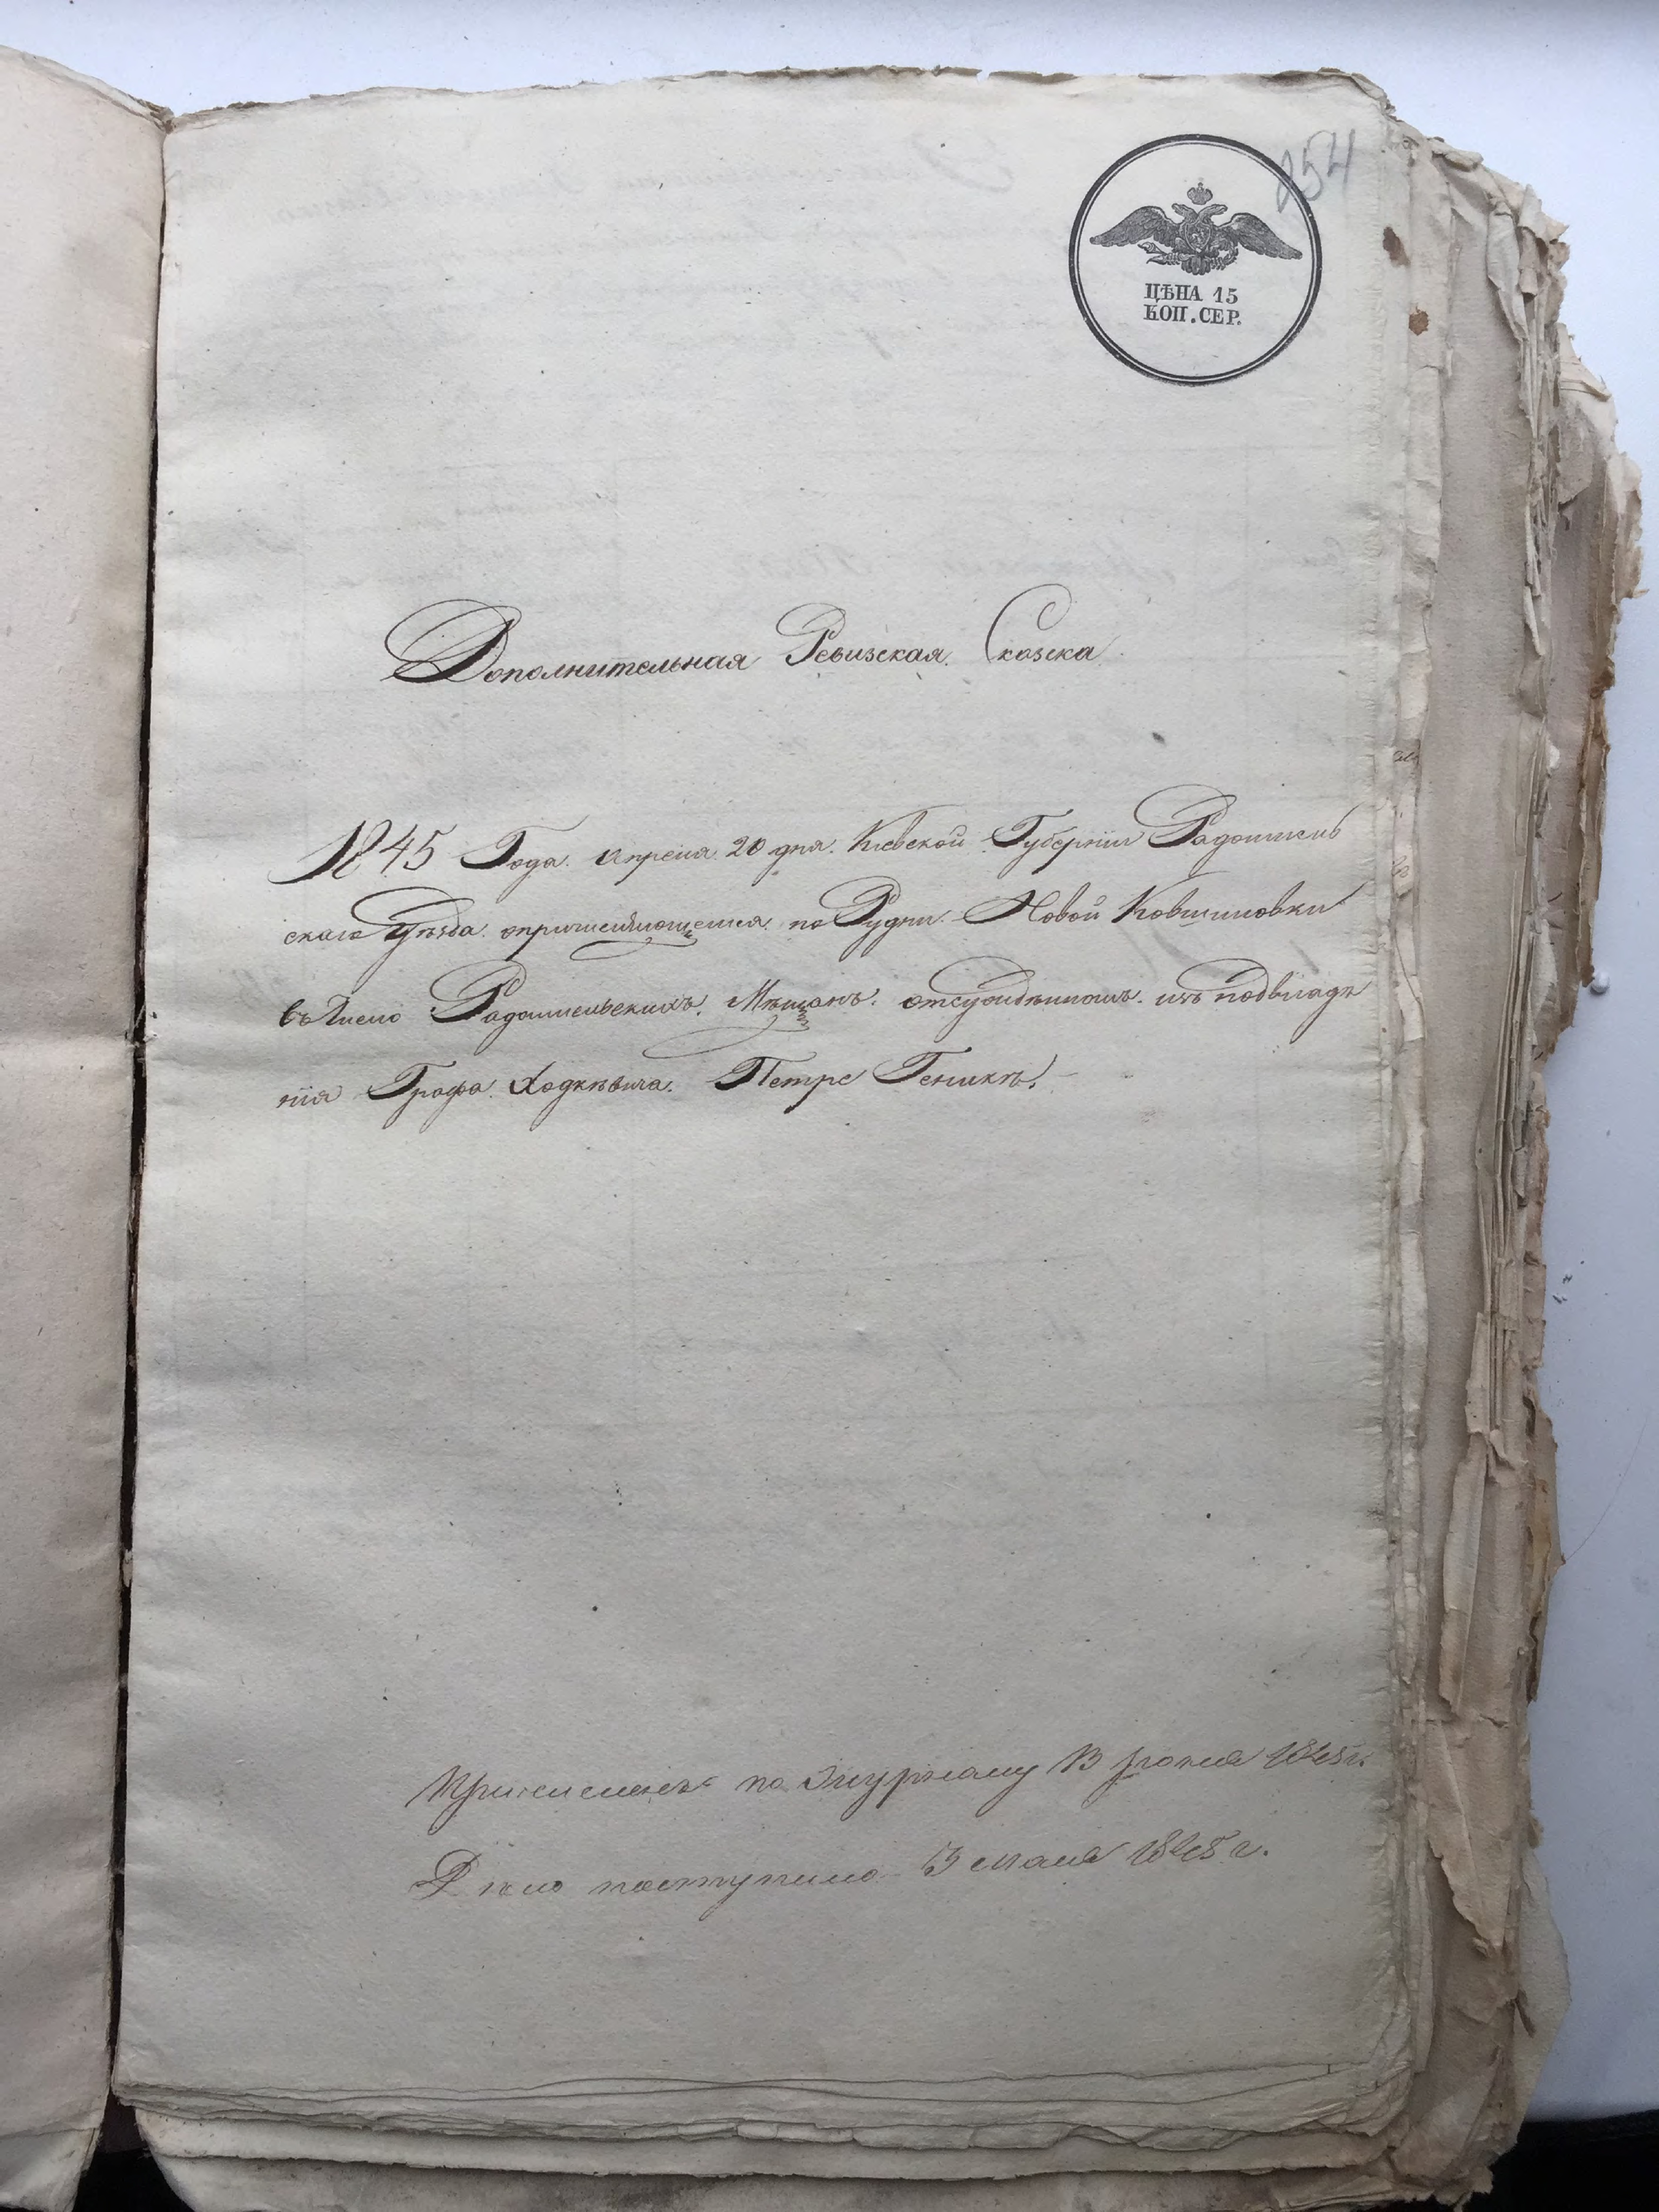 254
ЦѢНА 15
КОП. СЕР.
Дополнительная Ревизская Сказка
1845 Года. Апреля 20 дня. Кіевской Губерніи Радомысль
скаго Уѣзда. о причисляющемся по Рудни Новой
въ Число Радомысльскихъ Мѣщанъ. отсужденномъ изъ подвладѣ
нія Графа Ходкѣвича. Петре Геникѣ.
по Журналу 1845 г.
Дѣло поступило мая 1845 г.